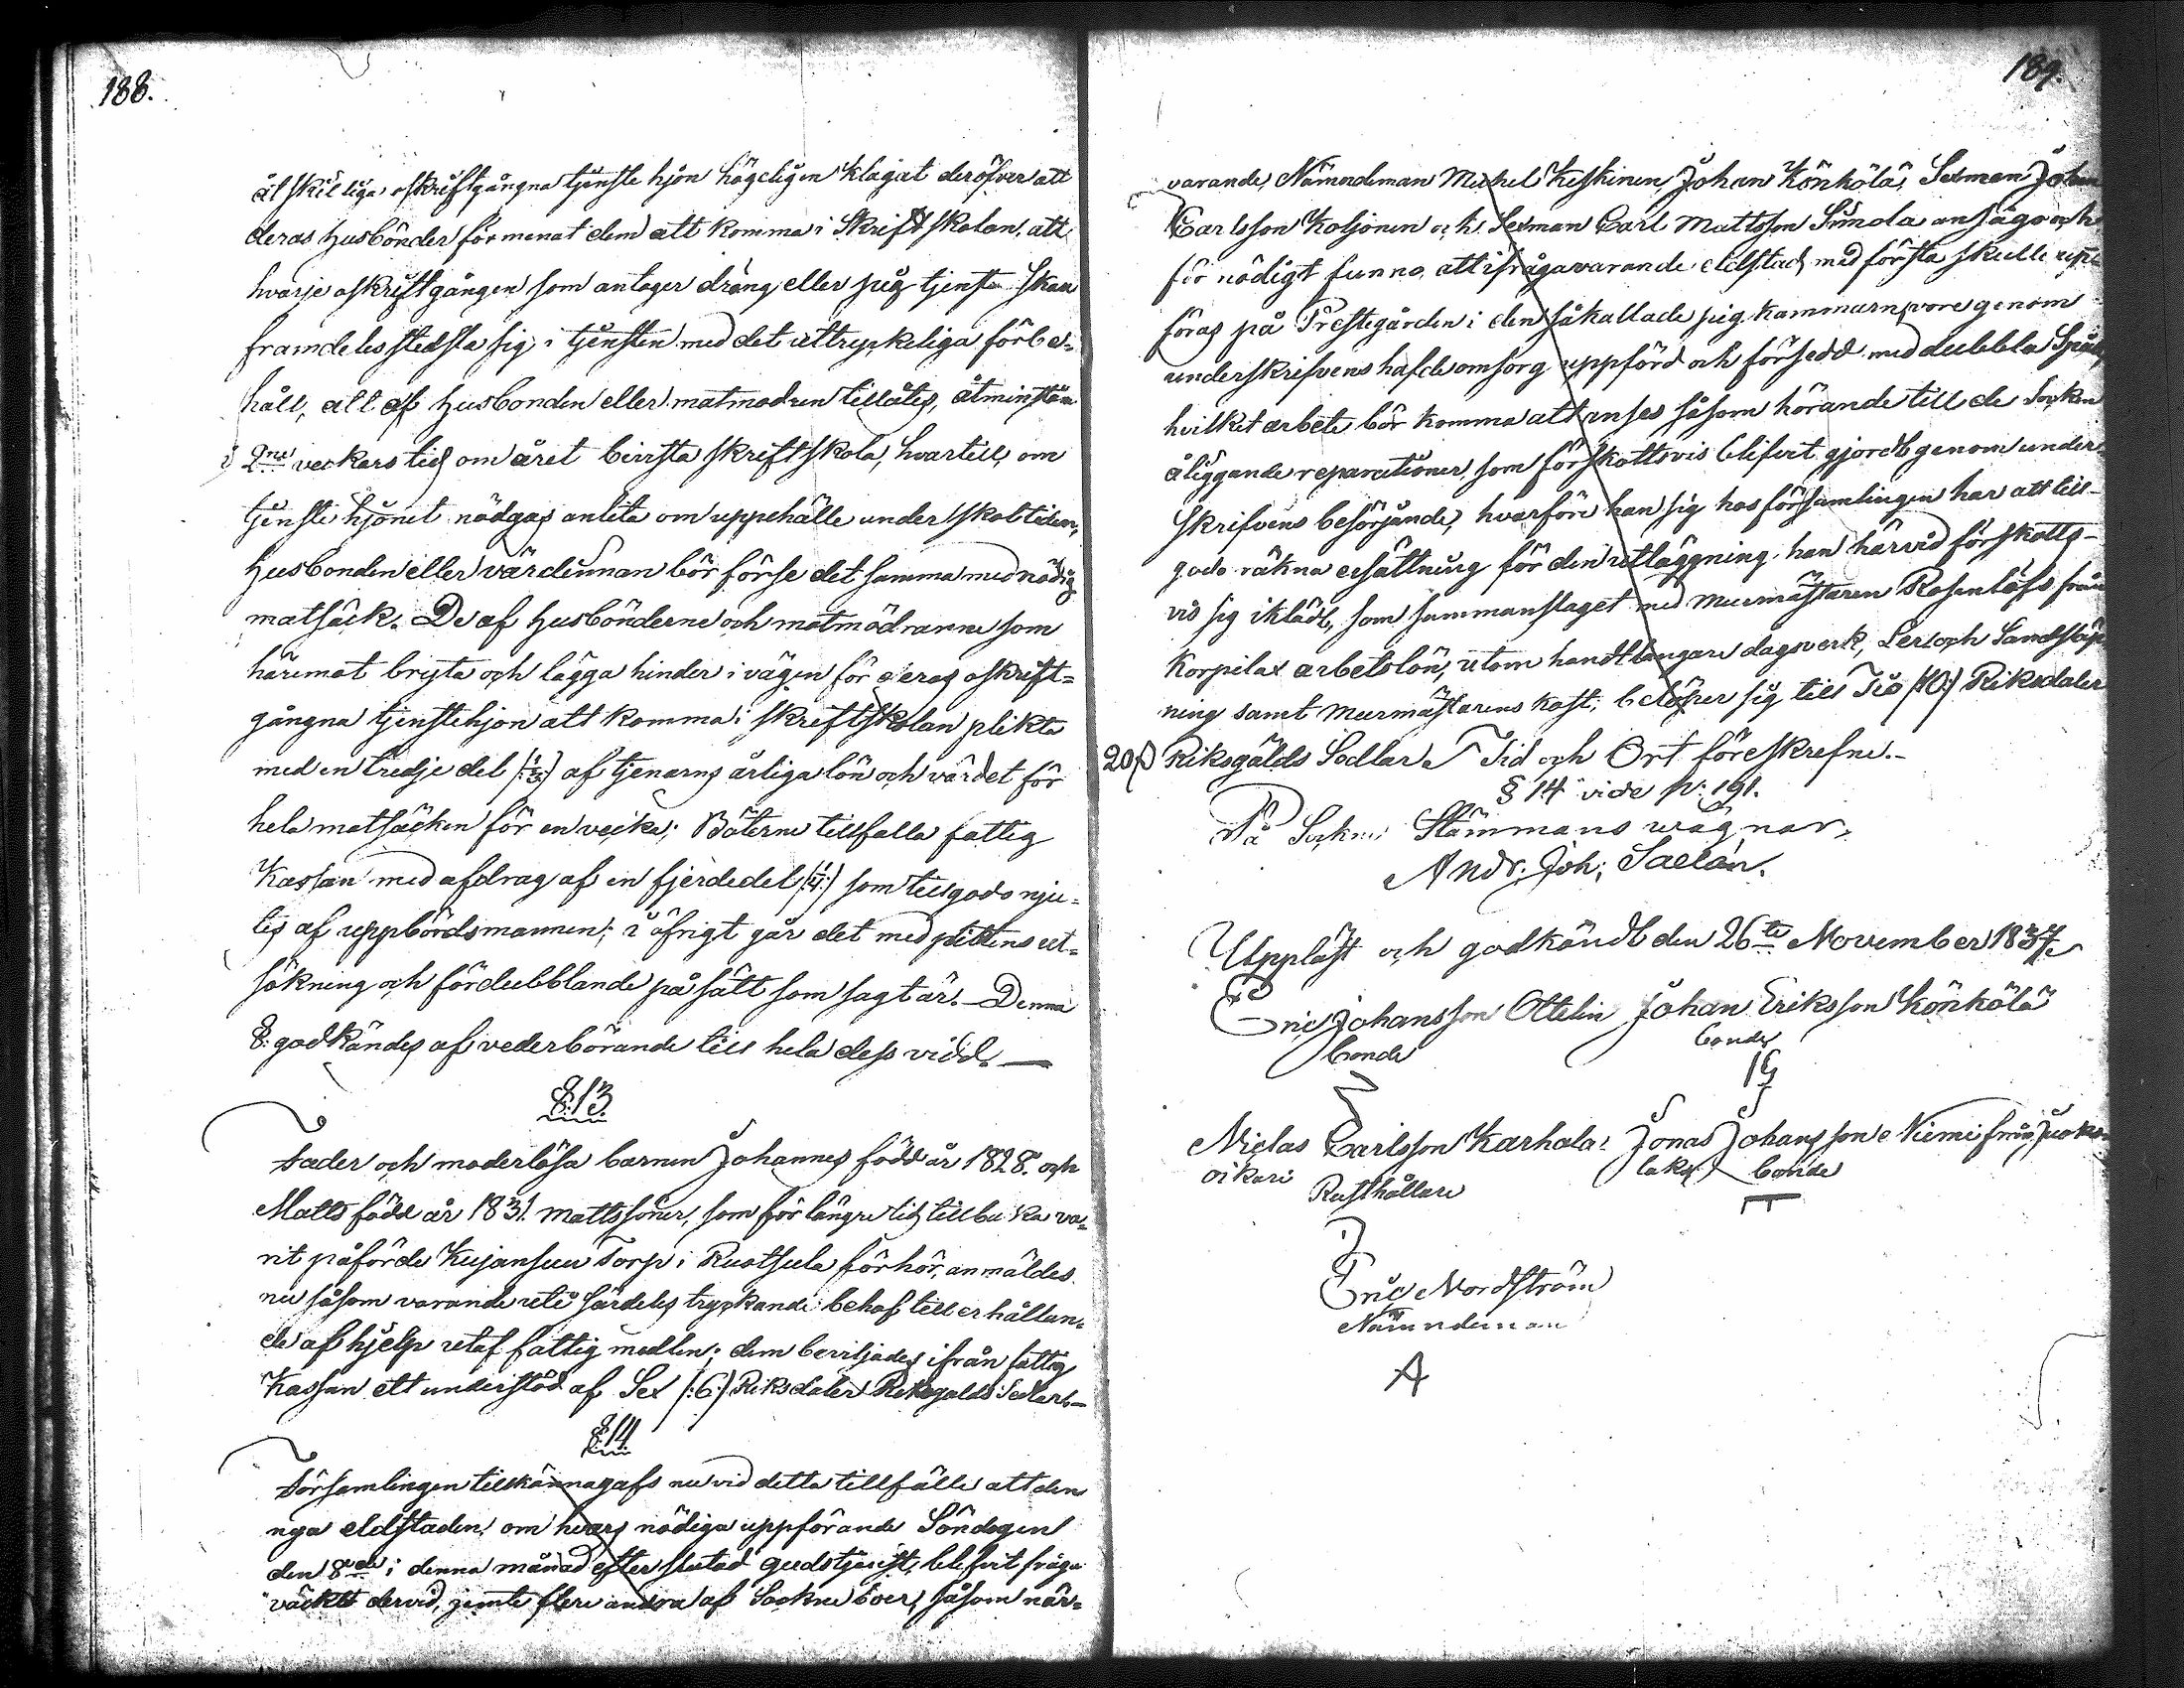 188.
åtskilliga oskriftgångna tjenste hjon högeligen klagat deröfver att
deras husbönder förmenat dem att komma i Skriftskolan, att
hvarje oskriftgången som antager dräng eller pig tjenst skau
framdeles stedsla sig i tjensten med det uttryckeliga förbe-
håll, att af husbonden eller matmodren tillåtes, åtminstone
2ne veckors tid om året bivista skriftskola, hvartill, om
tjenste hjonet nödgas anlita om uppehälle under skoltiden,
husbonden eller värdinnan bör förse det samma med nödig
matsäck. De af husbönderne och matmödrarne som
häremot bryta och lägga hinder i vägen för deras oskrift-
gångna tjenstehjon att komma i skriftskolan plikta
med en tredje del /:1/3:/ af tjenarns årliga lön och värdet för
hela matsäcken för en vecka; Böterne tillfalla fattig
Kassan med afdrag af en fjerdedel /:1/4:/ som tillgodo nju-
tes af uppbördsmannen; i öfrigt går det med plittens ut-
sökning och fördubblande på sätt som sagt är. Denna
§: godkändes af vederbörande till hela dess vidd. —
§:13.
Fader och moderlösa barnen Johannes född år 1828. och
Matts född år 1831. Mattssöner, som för längre tid tillbaka va-
rit påförde Kujansuu Torp i Ruotsula förhör, anmäldes
nu såsom varande uti särdeles tryckande behof till erhållan-
de af hjelp utaf fattig medlen; dem beviljades ifrån fattig
Kassan ett understöd af Sex /:6:/ Riksdaler Riksgälds Sedlar. —
§:14.
Församlingen tillkännagafs nu vid detta tillfälle att den
nya eldstaden, om hvars nödiga uppförande Söndagen
den 8de i denna månad efter slutad gudstjenst, blifvit fråga
väckt dervid, jemte flere andra af Sockne boer, såsom när-
189.
varande, Nämndeman Michel Keskinen, Johan Könkölä, Sexman Johan
Carlsson Koljonen och Sexman Carl Mattsson Simola ansågo och
för nödigt funno att ifrågavarande eldstad med första skulle upp-
föras på Prestegården i den såkallade pig kammarn, vore genom
underskrifvens hafde omsorg uppförd och försedd med dubbla Spiäll,
hvilket arbete bör komma att anses såsom hörande till de Socken
åliggande reparationer, som förskottsvis blifvit gjordt genom under-
skrifvens besörjande, hvarföre han sig hos församlingen har att till-
godo räkna ersättning för den utläggning han härvid förskotts-
vis sig iklädt, som sammanslaget med murmästaren Rosenlöfs från
Korpilax arbetslön, utom handtlangare dagsverk, Ler och Sandsläp-
ning samt murmästarens kost, belöper sig till Tio /:10:/ Riksdaler
20 ß Riksgälds Sedlar. Tid och Ort föreskrefne. -
§ 14 vide p. 191.
På Sockne Stämmans wägnar.
Andr: Joh: Saelán.
Uppläst och godkändt den 26te November 1837.
Eric Johansson Ottelin Johan Eriksson Könkölä
bonde bonde
Niclas Carlsson Karhala Jonas Johansson Niemi från Juoks
oikari Rusthållare laks bonde
Eric Nordström
Nämndeman